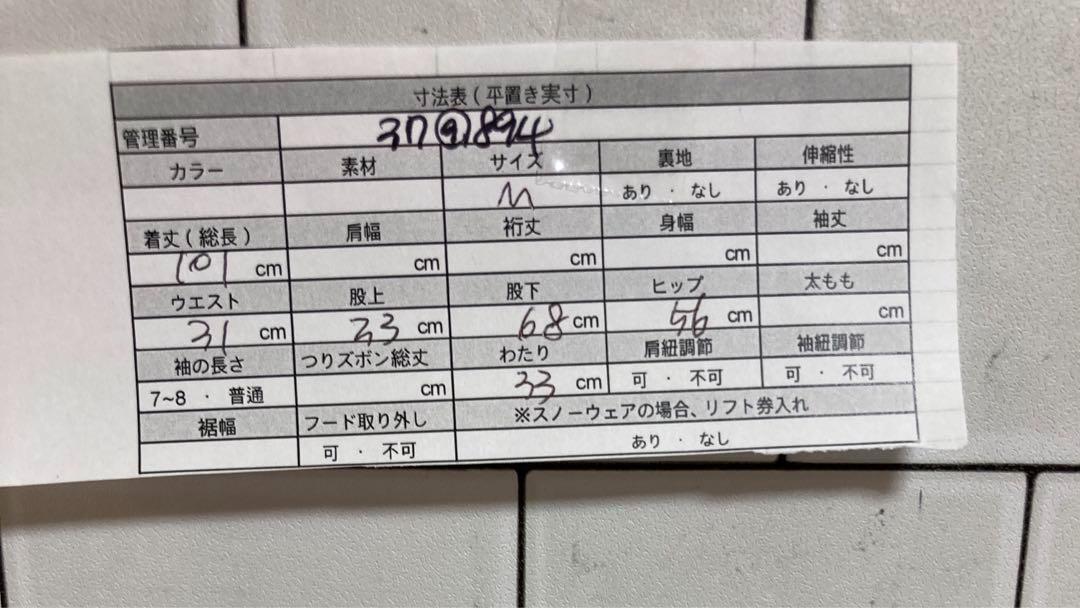 寸法表(平置き実寸)
管理番号 37⑨894
カラー 素材 サイズ 裏地 伸縮性
M あり ・ なし あり ・ なし
着丈(総長) 肩幅 裄丈 身幅 袖丈
101 cm cm cm cm cm
ウエスト 股上 股下 ヒップ 太もも
31 cm 33 cm 68 cm 56 cm cm
袖の長さ つりズボン総丈 わたり 肩紐調節 袖紐調節
7~8 ・ 普通 cm 33 cm 可 ・ 不可 可 ・ 不可
裾幅 フード取り外し ※スノーウェアの場合、リフト券入れ
可 ・ 不可 あり ・ なし